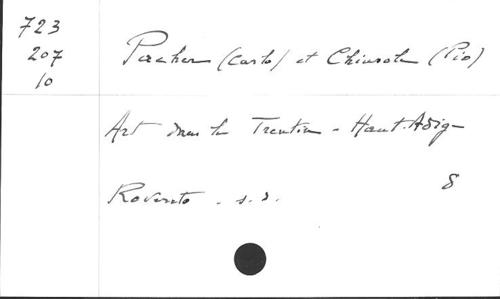 723
207
10
Pacher (Carlo) et Chiusole (Pio)
Art dans le Trentin - Haut-Adige
8
Rovereto - s. d.